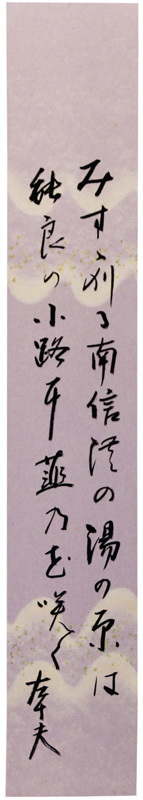 みすゞ刈る南信濃の湯の原は
野良の小路耳韮乃花咲く 幸夫